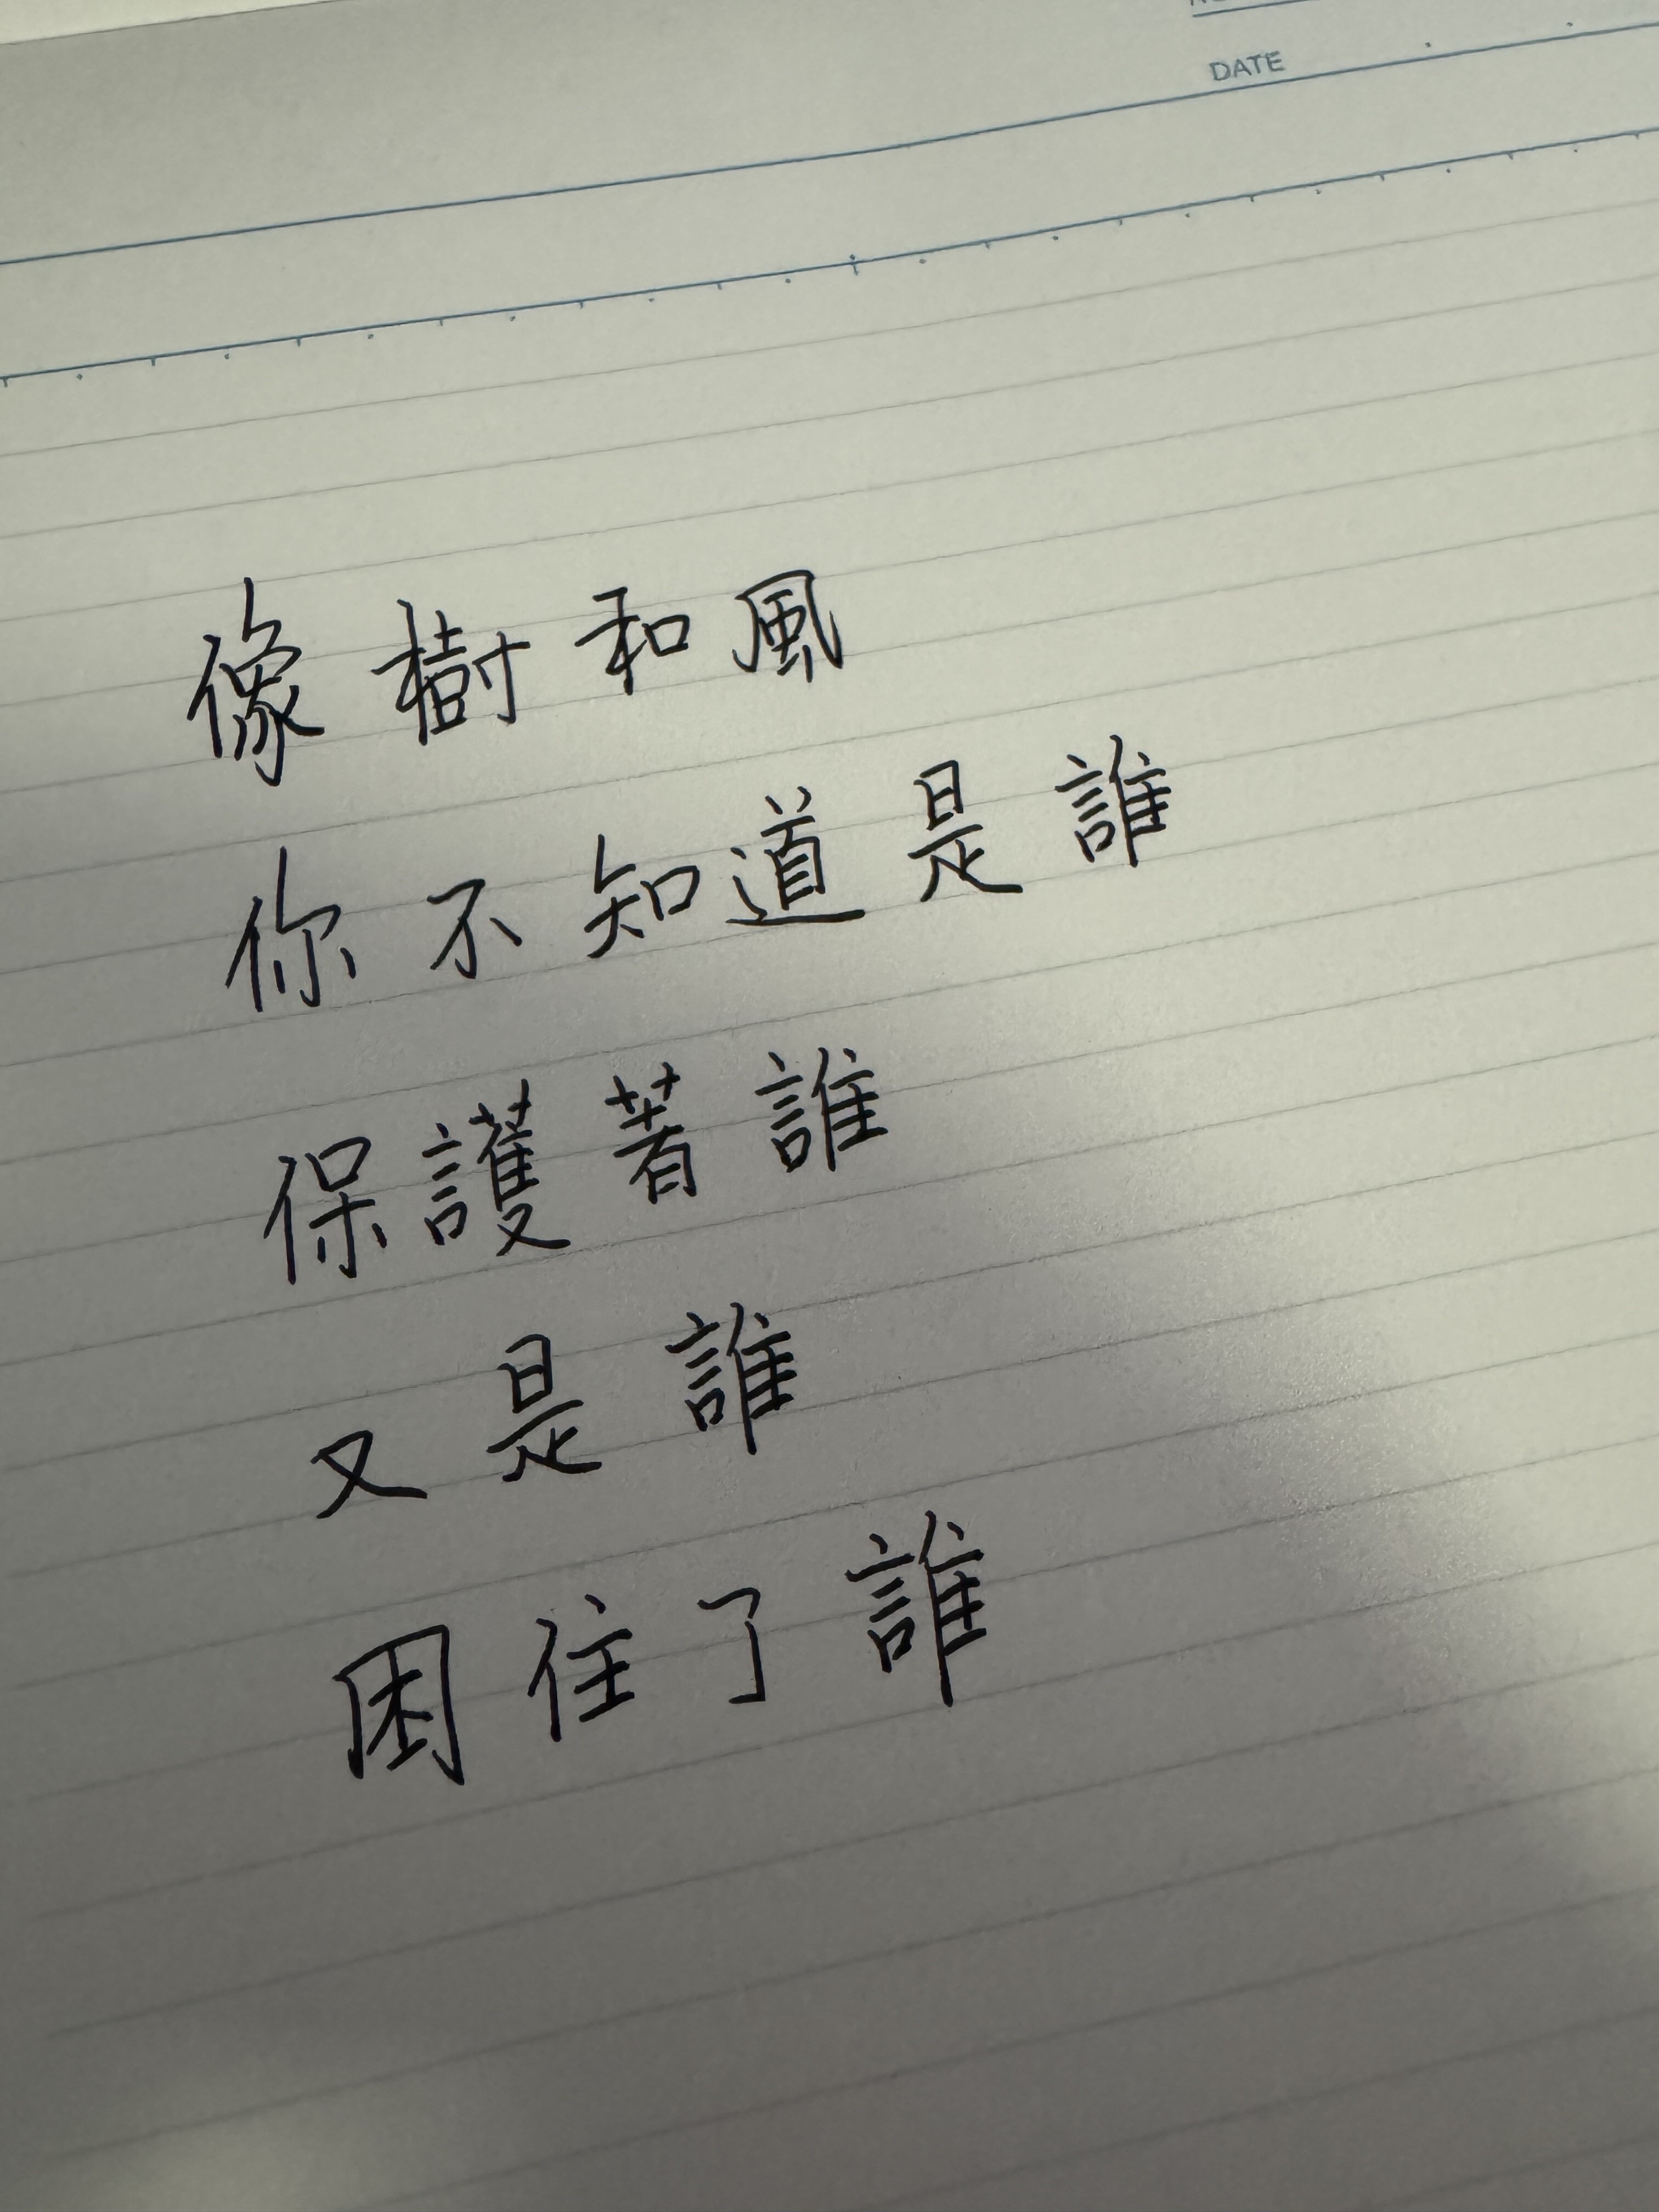 DATE
像樹和風
你不知道是誰
保護著誰
又是誰
困住了誰